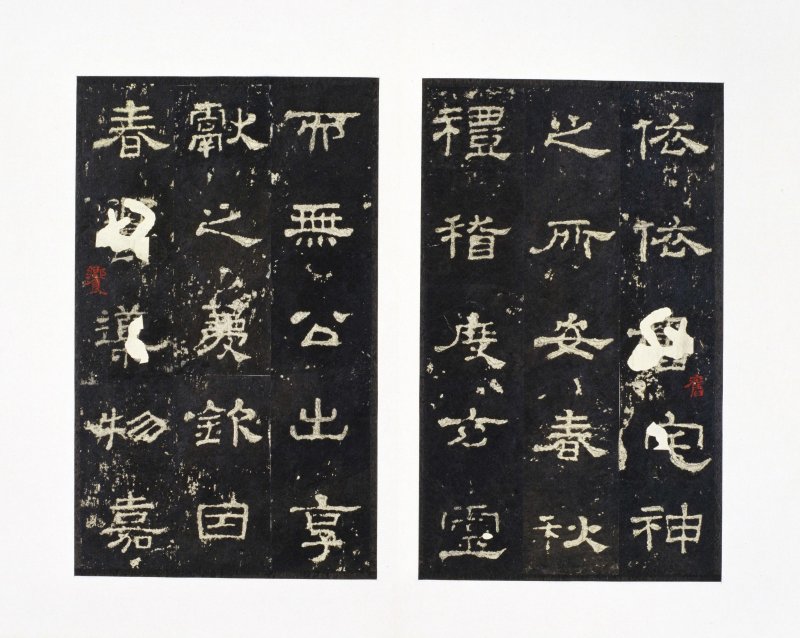 依依舊宅神
之所安春秋
禮稽度玄靈
而無公出享
獻之薦欽因
春饗導物嘉